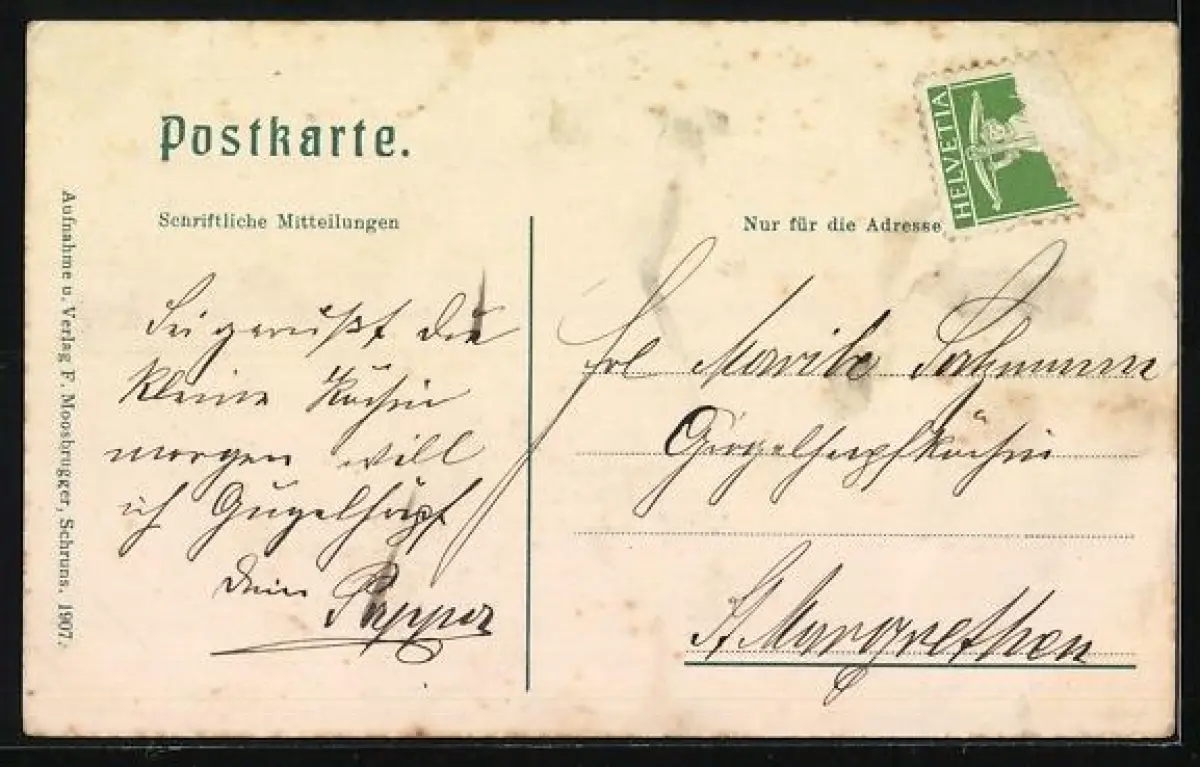 Postkarte.
Schriftliche Mitteilungen
Nur für die Adresse
HELVETIA
Aufnahme u. Verlag F. Moosbrugger, Schruns. 1907.
Sei gegrüßt du
kleine Köchin
morgen will
ich Gugelhupf
Dein Pappa
Frl
Gugelhupfköchin
St Margrethen